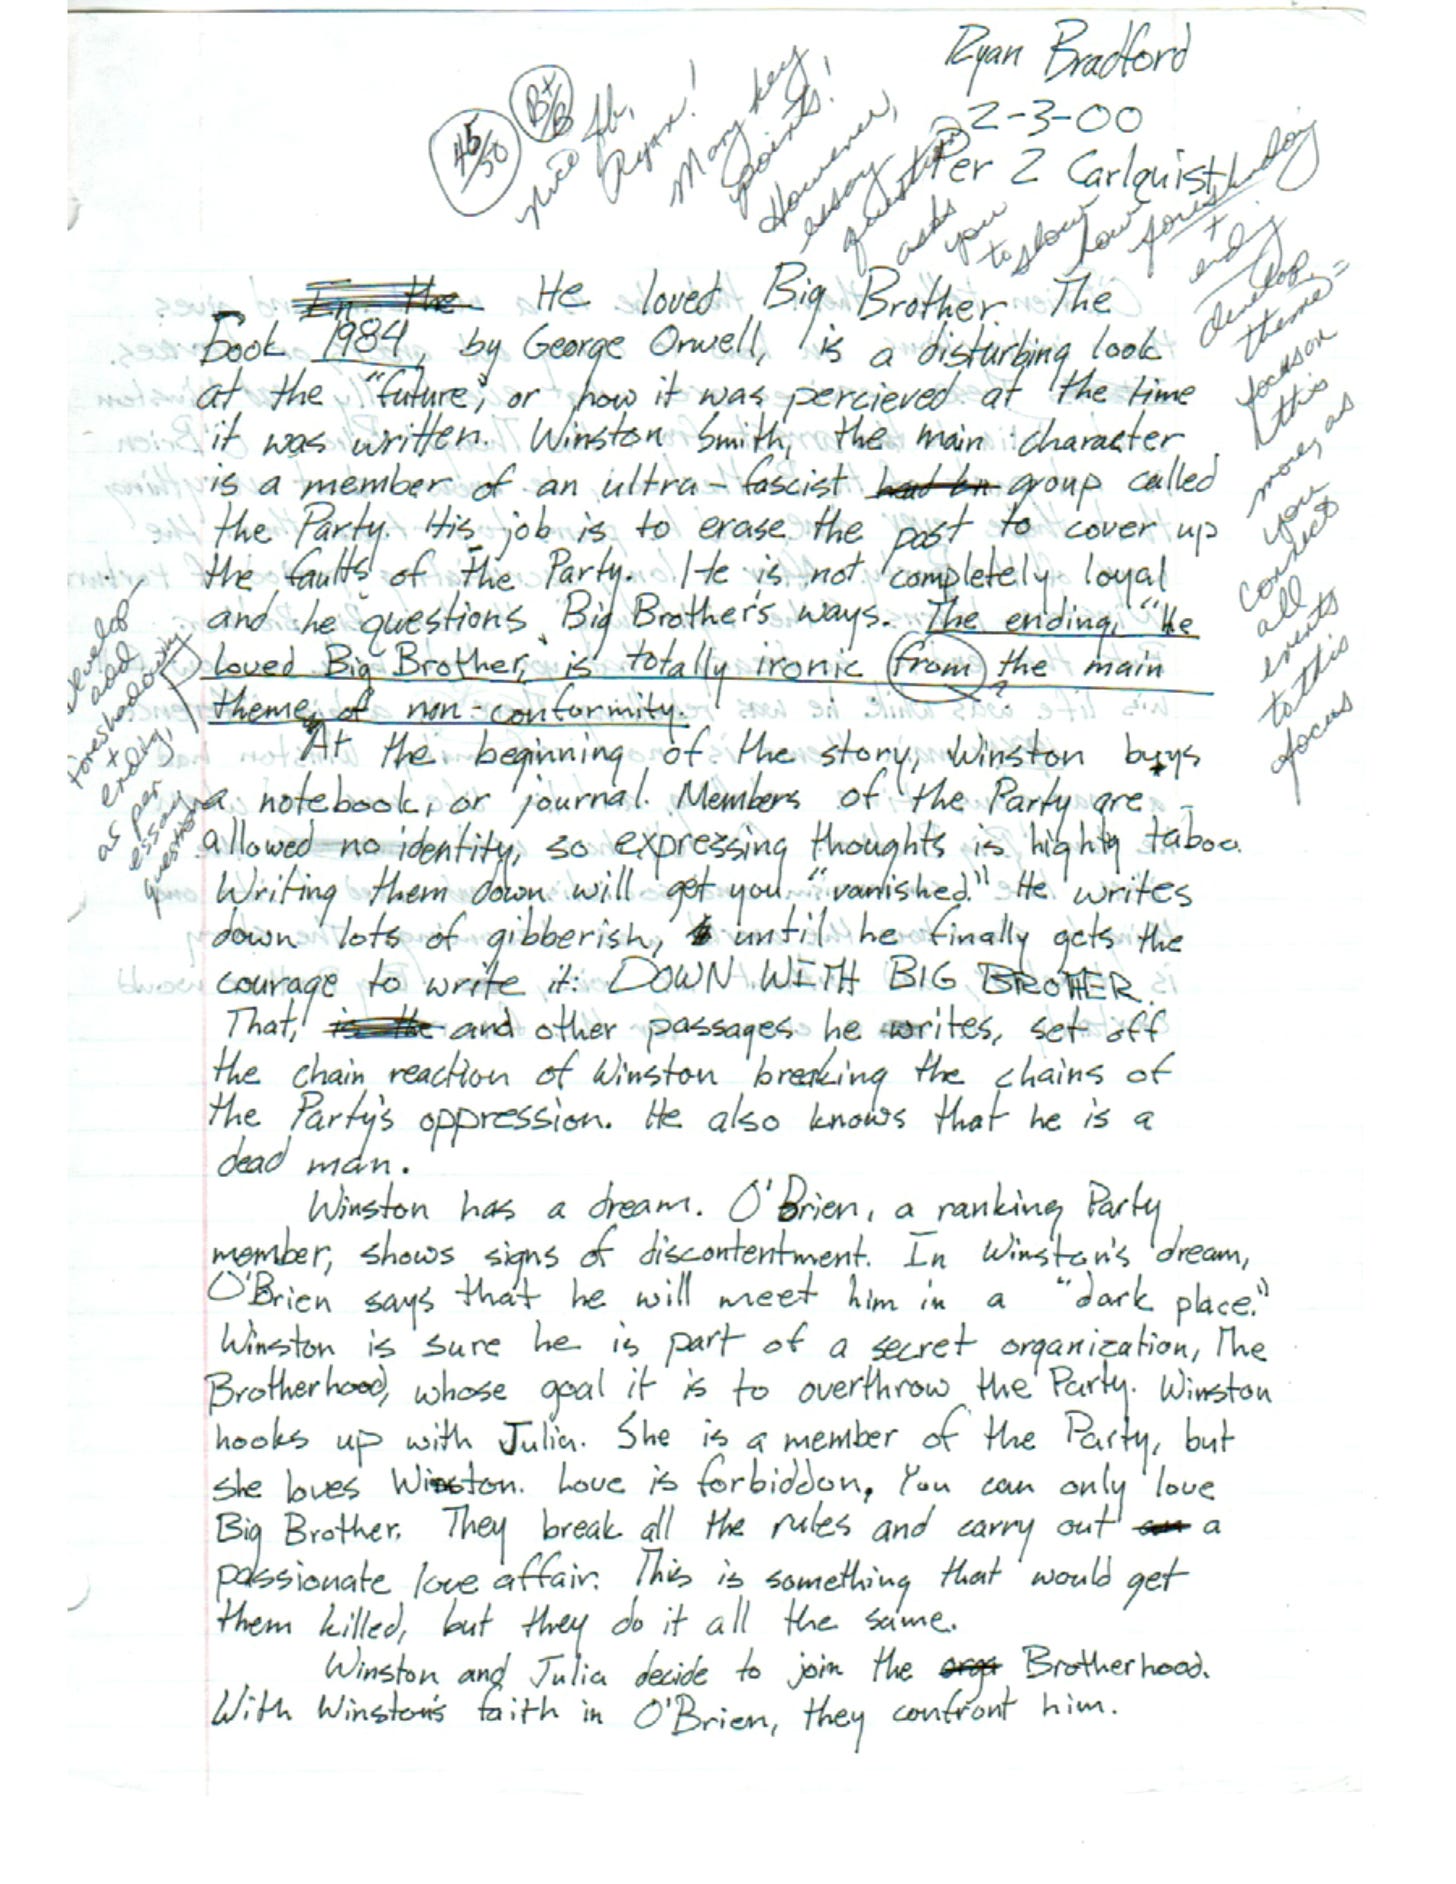 Ryan Bradford
2-3-00
Per 2 Carlquist
45/50
B+/B
Nice job,
Ryan!
Many key
points!
However,
essay
question
asks
you
to show
how
foreshadowing
+
ending
develop
theme=
focus on
this
more, as
you
connect
all
events
to this
focus
In the He loved Big Brother. The
book 1984, by George Orwell, is a disturbing look
at the "future", or how it was percieved at the time
it was written. Winston Smith, the main character
is a member of an ultra-fascist group called
the Party. His job is to erase the past to cover up
the faults of the Party. He is not completely loyal
and he questions Big Brother's ways. The ending, "He
loved Big Brother," is totally ironic from the main
?
theme, of non-conformity.
develop-
add
foreshadowing
+
ending,
as per
essay
question
At the beginning of the story, Winston buys
a notebook, or journal. Members of the Party are
allowed no identity, so expressing thoughts is highly taboo.
Writing them down will get you "vanished." He writes
down lots of gibberish, until he finally gets the
courage to write it: DOWN WITH BIG BROTHER.
That, is the and other passages he writes, set off
the chain reaction of Winston breaking the chains of
the Party's oppression. He also knows that he is a
dead man.
Winston has a dream. O'Brien, a ranking Party
member, shows signs of discontentment. In Winston's dream,
O'Brien says that he will meet him in a "dark place."
Winston is sure he is part of a secret organization, The
Brotherhood, whose goal it is to overthrow the Party. Winston
hooks up with Julia. She is a member of the Party, but
she loves Winston. Love is forbiddon. You can only love
Big Brother. They break all the rules and carry out a
passionate love affair. This is something that would get
them killed, but they do it all the same.
Winston and Julia decide to join the orga Brotherhood.
With Winston's faith in O'Brien, they confront him.